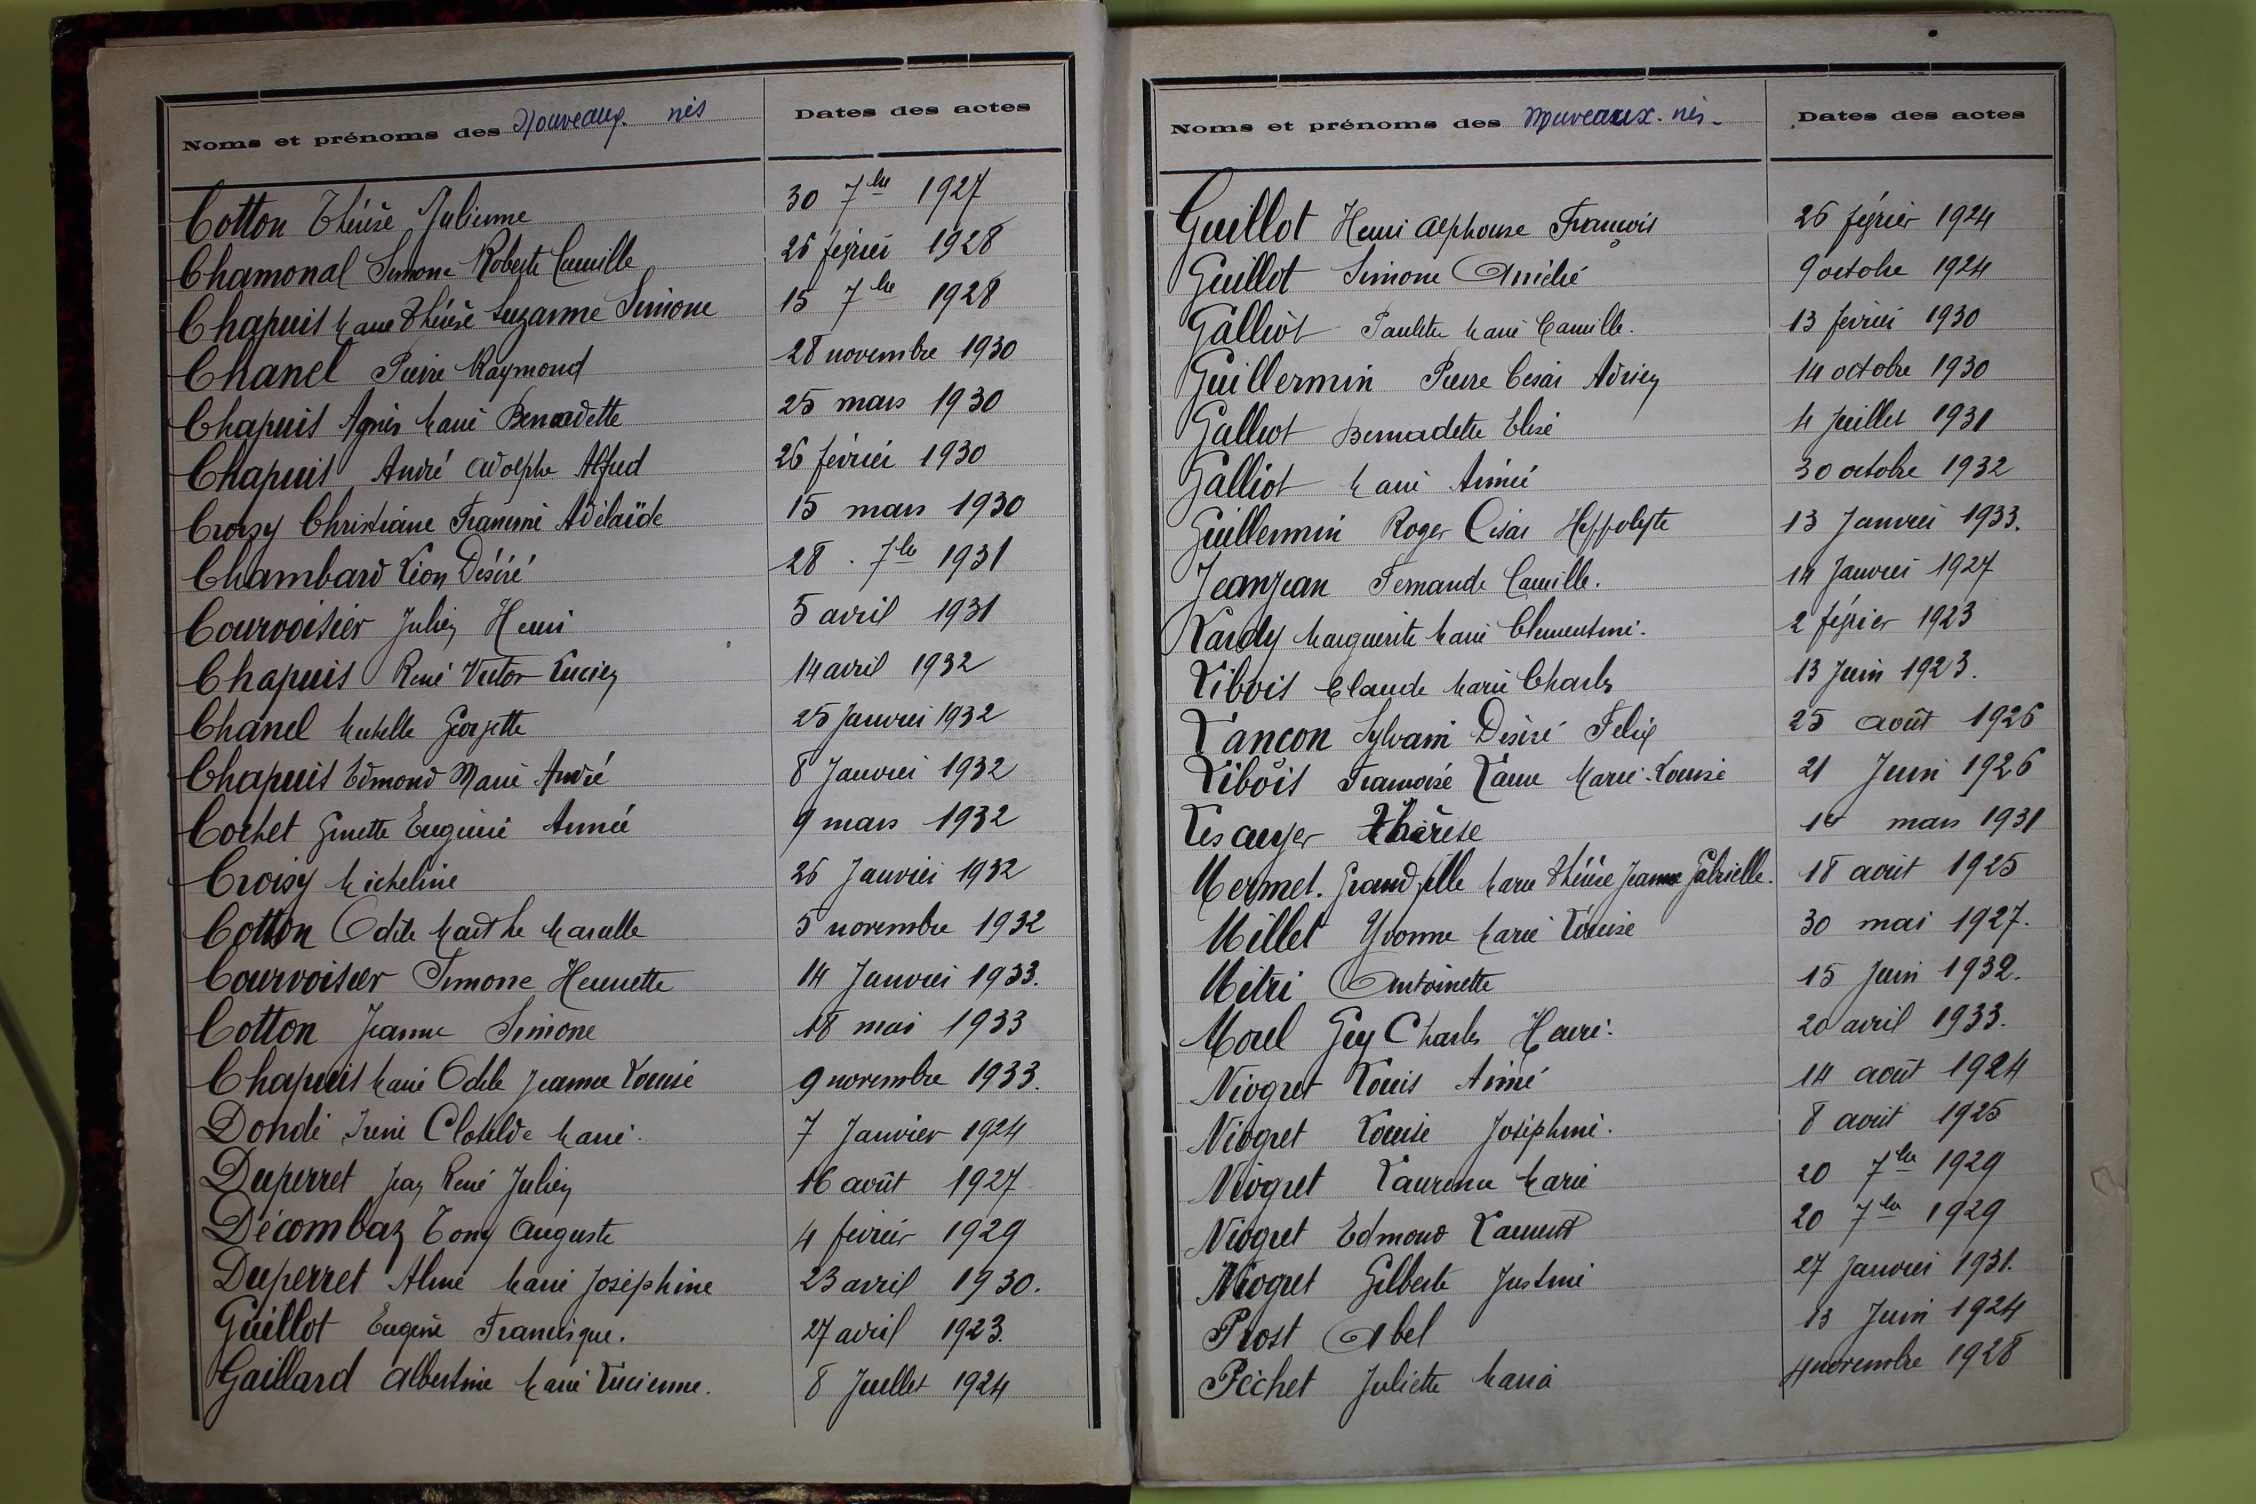 Noms et prénoms des Nouveaux nés Dates des actes
Cotton Thérèse Julienne 30 7bre 1927
Chamonal Simone Roberte Camille 26 février 1928
Chapuis Marie Thérèse Suzanne Simone 15 7bre 1928
Chanel Pierre Raymond 28 novembre 1930
Chapuis Agnès Marie Bernadette 25 mars 1930
Chapuis André Adolphe Alfred 26 février 1930
Croisy Christiane Francine Adélaïde 15 mars 1930
Chambard Léon Désiré 28 7bre 1931
Courvoisier Julien Henri 5 avril 1931
Chapuis René Victor Lucien 14 avril 1932
Chanel Michelle Georgette 25 Janvier 1932
Chapuis Edmond Marie André 8 Janvier 1932
Cochet Ginette Eugénie Aimée 9 mars 1932
Croisy Micheline 26 Janvier 1932
Cotton Odile Marthe 5 novembre 1932
Courvoisier Simone Henriette 14 Janvier 1933.
Cotton Jeanne Simone 18 mai 1933
Chapuis Marie Odile Jeanne Louise 9 novembre 1933.
Dondi Irène Clotilde Marie. 7 Janvier 1924
Duperret Jean René Julien 16 août 1927
Décombaz Tony Auguste 4 février 1929
Duperret Aline Marie Joséphine 23 avril 1930.
Guillot Eugène Francisque. 27 avril 1923.
Gaillard Albertine Marie Lucienne. 8 Juillet 1924
Noms et prénoms des Nouveaux-nés- Dates des actes
Guillot Henri Alphonse François 26 février 1924
Guillot Simone 9 octobre 1924
Galliot Paulette Marie Camille. 13 février 1930
Guillermin Pierre César Adrien 14 octobre 1930
Galliot Bernadette Elise 4 Juillet 1931
Galliot Marie Aimée 30 octobre 1932
Guillermin Roger César Hippolyte 13 Janvier 1933.
Jeanjean Fernande Camille. 14 Janvier 1927
Lardy Marguerite Marie Clémentine. 2 février 1923
Libois Claude Marie Charles 13 Juin 1923.
Lançon Sylvain Désiré Félix 25 août 1926
Libois Françoise Laure Marie-Louise 21 Juin 1926
Lescuyer Thérèse mars 1931
Mermet. Grandfille Marie Thérèse Jeanne Gabrielle. 18 août 1925
Millet Yvonne Marie Louise 30 mai 1927.
Mitri Antoinette 15 Juin 1932.
Morel Guy Charles Henri. 20 avril 1933.
Niogret Louis Aimé 14 août 1924
Niogret Louise Joséphine. 8 août 1925
Niogret Laurence Marie 20 7bre 1929
Niogret Edmond Laurent 20 7bre 1929
Niogret Gilberte Justine 27 Janvier 1931.
Prost Abel 13 Juin 1924
Péchet Juliette Maria 4 novembre 1928